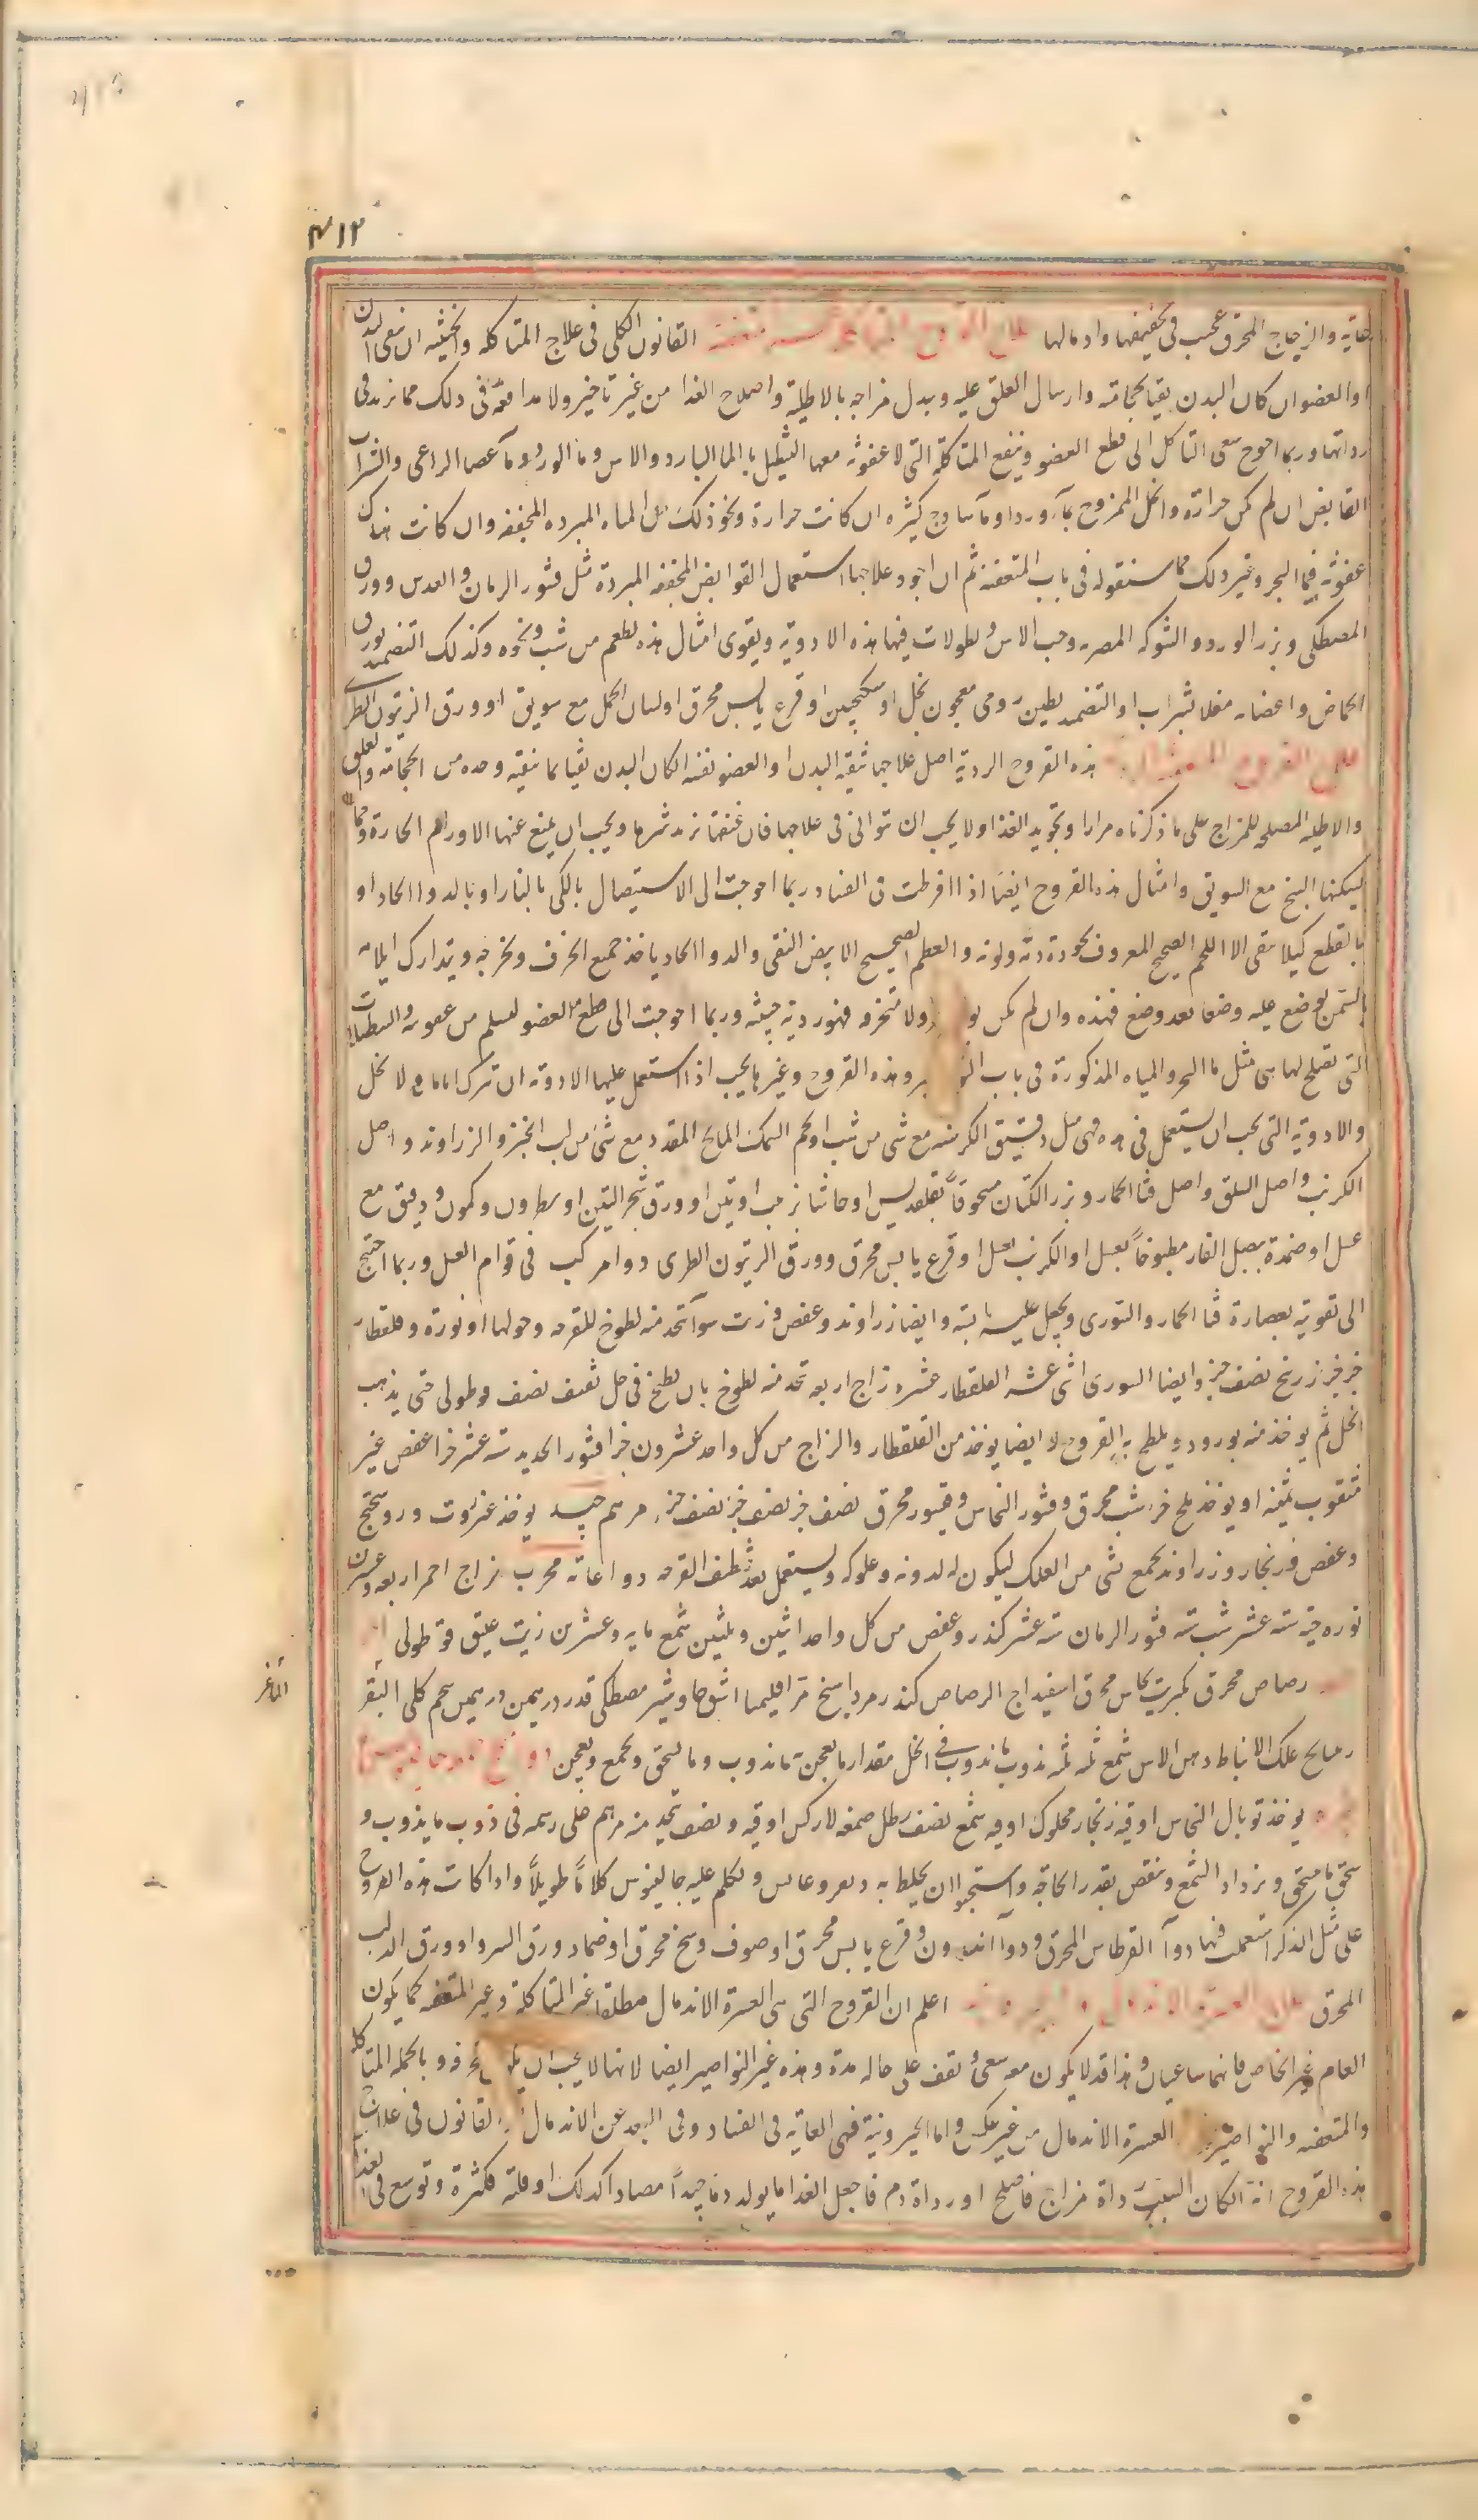 ٤١٢
غاية والزجاج المحرق عجيب فى تجفيفها وادمالها علاج القروح المتاكلة القانون الكلى فى علاج المتاكله والخبيثه ان ينقى البدن
او العضو ان كان البدن نقيا بحجامته وارسال العلق عليه ويبدل مزاجه بالاطلية واصلاح الغذا من غير تاخير ولا مدافعة فى ذلك مما يزيد فى
رداتها وربما احوج سعى التاكل الى قطع العضو وينفع المتاكلة التى لا عفونة معها التنطيل بالما البارد والاس وما الورد وما عصا الراعى والشراب
القابض ان لم تكن حرارة والخل الممزوج بما ورد او ما ساذج كثيره ان كانت حرارة ونحو ذلك من المياه المبرده المجففه وان كانت هناك
عفونة فبما البحر وغير ذلك مما سنقوله فى باب المتعفنه ثم ان اجود علاجها استعمال القوابض المجففه المبردة مثل قشور الرمان والعدس وورق
المصطكى وبزر الورد والشوكه المصريه وحب الاس ونطولات فيها هذه الادوية ويقوى امثال هذه بطعم من شب ونحوه وكذلك التضميد بورق
الحماض واعضانه مغلا بشراب او التضميد بطين رومى معجون بخل او سكنجبين او قرع يابس محرق او لسان الحمل مع سويق او ورق الزيتون الطرى
علاج القروح المتعفنة هذه القروح الردية اصل علاجها تنقية البدن او العضو نفسه ان كان البدن نقيا بما ينقيه وحده من الحجامة والعلق
والاطليه المصلحه للمزاج على ما ذكرناه مرارا وتجويد الغذا ولا يجب ان تتوانى فى علاجها فان عفنها يزيد شرها ويجب ان يمنع عنها الاورام الحارة ومما
يسكنها البنج مع السويق وامثال هذه القروح ايضا اذا افرطت فى الفساد ربما احوجت الى الاستيصال بالكى بالنار او بالدوا الحاد او
بالقطع كيلا يبقى الا اللحم الصحيح المعروف بجودة دمه ولونه والعظم الصحيح الابيض النقى والدوا الحاد ياخذ جميع الخزف ويخرجه ويتدارك ايلامه
بالسمن يوضع عليه وضعا بعد وضع فهذه وان لم تكن ولا منخزفه فهى ردية خبيثه وربما احوجت الى قطع العضو ليسلم من عفونته والنطولات
التى تصلح لها هى مثل ما البحر والمياه المذكورة فى باب وهذه القروح وغيرها يجب اذا استعمل عليها الادوية ان تترك اياما لا تحل
والادوية التى يجب ان يستعمل فى هذه فهى مثل دقيق الكرسنه مع شى من شب او لحم السمك المالح المقدد مع شى من لب الخبز والزراوند واصل
الكرنب واصل السلق واصل قثا الحمار وبزر الكتان مسحوقا بقلقديس او حاشا بزبيب او تين او ورق شجر التين او نطرون وكمون ودقيق مع
عسل او ضمدة ببصل الفار مطبوخا بعسل او الكرنب بعسل او قرع يابس محرق وورق الزيتون الطرى دوا مركب فى قوام العسل وربما احتج
الى تقويته بعصارة قثا الحمار والتورى ويجعل عليه ثابته وايضا زراوند وعفص وزيت سوا تتخذ منه لطوخ للقرحه وحولها او نورة وقلقطار
جز جز زرنيخ نصف جز وايضا السورى اثنى عشر القلقطار عشره زاج اربعه تتخذ منه لطوخ بان يطبخ فى خل ثقيف نصف قوطولى حتى يذهب
الخل ثم يوخذ منه بورود ويلطخ به القروح وايضا يوخذ من القلقطار والزاج من كل واحد عشرون جزا قشور الحديد سته عشر جزا عفص غير
مثقوب ثمنيه او يوخذ ملح جز شب محرق وقشور النحاس وقيسور محرق نصف جز نصف جز نصف جز مرهم جيد يوخذ عنزروت وروسختج
وعفص وزنجار وزراوند يجمع بشى من العلك ليكون له لدونه وعلوكه ويستعمل بعد تنظيف القرحه دوا غايه مجرب زاج احمر اربعه وعشرين
نوره حيه سته عشر شب سته قشور الرمان سته عشر كندر وعفص من كل واحد اثنين وثلثين شمع مايه وعشرين زيت عتيق قوطولى
رصاص محرق كبريت نحاس محرق اسفيداج الرصاص كندر مرداسنج مر اقليميا اشق جاوشير مصطكى قدر درهمين درهمين شحم كلى البقر
علك الانباط دهن الاس شمع ثمه ثمه يذوب ما يذوب فى الخل مقدار ما يعجن به ما يذوب وما يسحق ويجمع ويعجن
يوخذ توبال النحاس اوقية زنجار محلوك اوقيه شمع نصف رطل صمغ لاركس اوقيه ونصف تتخذ منه مرهم على رسمه فى ذوب ما يذوب و
سحق ما يسحق ويزداد الشمع وينقص بقدر الحاجه واستحبوا ان يخلط به وتكلم عليه جالينوس كلاما طويلا واذا كانت هذه القروح
على مثل الذكر استعملت فيها دوا القرطاس المحرق ودوا اندرون وقرع يابس محرق او صوف وسخ محرق او ضماد ورق السرو او ورق الدلب
المحرق علاج العسرة الاندمال والخيرونية اعلم ان القروح التى هى العسرة الاندمال مطلقا غير المتاكلة وغير المتعفنه كما يكون
العام غير الخاص فانهما ساعيان وهذا قد لا يكون معه سعى وتقف على حاله مدة وهذه غير النواصير ايضا لانها لا يجب ان وبالجمله المتاكله
والمتعفنه والنواصير العسرة الاندمال من غير عكس واما الخيرونية فهى الغايه فى الفساد وفى البعد عن الاندمال القانون فى علاج
هذه القروح انه ان كان السبب رداة مزاج فاصلح او رداة دم فاجعل الغذا ما يولد دما جيدا مضادا لذلك او قلته فكثرة وتوسع فى الغذا